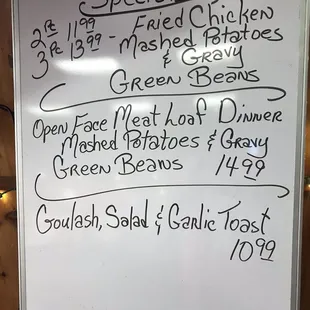 Specials
2 Pc 11.99 Fried Chicken
3 Pc 13.99 - Mashed Potatoes
& Gravy
Green Beans
Open Face Meat Loaf Dinner
Mashed Potatoes & Gravy
Green Beans 14.99
Goulash, Salad & Garlic Toast
10.99